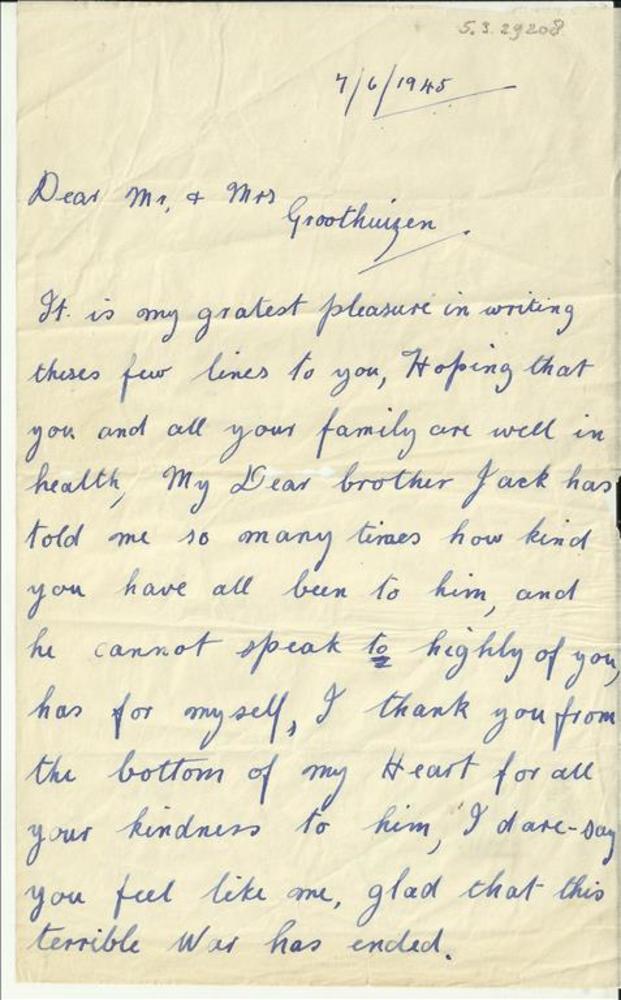 5.3.29208
7/6/1945
Dear Mr, & Mrs
Groothuizen.
It is my gratest pleasure in writing
theses few lines to you, Hoping that
you and all your family are well in
health, My Dear brother Jack has
told me so many times how kind
you have all been to him, and
he cannot speak to highly of you,
has for myself, I thank you from
the bottom of my Heart for all
your kindness to him, I dare-say
you feel like me, glad that this
terrible War has ended.